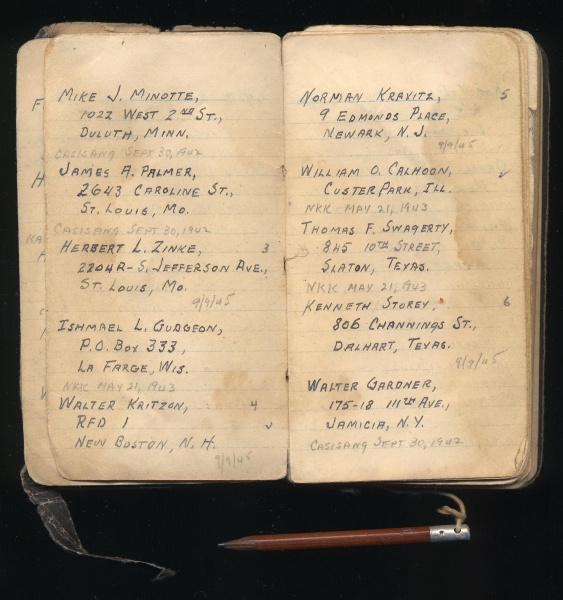 MIKE J. MINOTTE,
1022 WEST 2ND ST.,
DULUTH, MINN.
CASISANG SEPT 30, 1942
JAMES A. PALMER,
2643 CAROLINE ST.,
ST. LOUIS, MO.
CASISANG SEPT. 30, 1942
HERBERT L. ZINKE, 3
2204A-S. JEFFERSON AVE.,
ST. LOUIS, MO.
9/9/45
ISHMAEL L. GUDGEON,
P.O. BOX 333,
LA FARGE, WIS.
NKK MAY 21, 1943
WALTER KRITZON, 4
RFD 1 ✓
NEW BOSTON, N. H.
9/9/45
NORMAN KRAVITZ, 5
9 EDMONDS PLACE,
NEWARK, N. J.
9/9/45
WILLIAM O. CALHOON, ✓
CUSTER PARK, ILL.
NKK MAY 21, 1943
THOMAS F. SWAGERTY,
845 10TH STREET,
SLATON, TEXAS.
NKK MAY 21, 1943
KENNETH STOREY, 6
806 CHANNINGS ST.,
DALHART, TEXAS.
9/9/45
WALTER GARDNER,
175-18 111TH AVE.,
JAMICIA, N.Y.
CASISANG SEPT 30, 1942